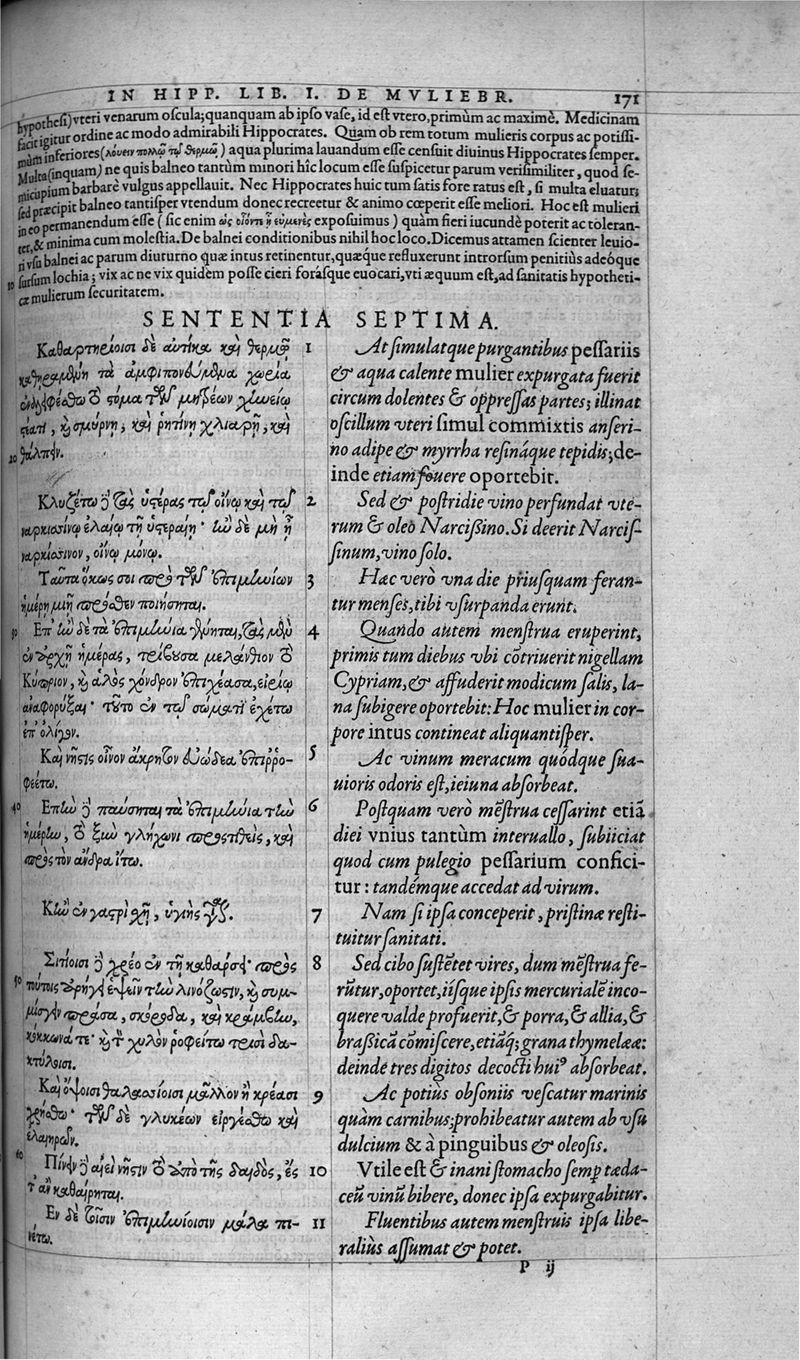 IN HIPP. LIB. I. DE MVLIEBR. 171
hypothesi) vteri venarum oſcula; quanquam ab ipſo vaſe, id eſt vtero, primùm ac maximè. Medicinam
facit igitur ordine ac modo admirabili Hippocrates. Quam ob rem totum mulieris corpus ac potiſſi-
mùm inferiores (λούειν πολλῷ τῷ θερμῷ) aqua plurima lauandum eſſe cenſuit diuinus Hippocrates ſemper.
Multa (inquam) ne quis balneo tantùm minori hîc locum eſſe ſuſpicetur parum veriſimiliter, quod ſe-
micupium barbarè vulgus appellauit. Nec Hippocrates huic tum ſatis fore ratus eſt, ſi multa eluatur;
ſed præcipit balneo tantiſper vtendum donec recreetur & animo cœperit eſſe meliori. Hoc eſt mulieri
in eo permanendum eſſe (ſic enim ὡς οἷόντι ᾖ εὐμενὲς expoſuimus) quàm fieri iucundè poterit ac toleran-
ter, & minima cum moleſtia. De balnei conditionibus nihil hoc loco. Dicemus attamen ſcienter leuio-
ri vſu balnei ac parum diuturno quæ intus retinentur, quæque refluxerunt introrſum penitiùs adeóque
10 ſurſum lochia; vix ac ne vix quidem poſſe cieri foráſque euocari, vti æquum eſt, ad ſanitatis hypotheti-
cæ mulierum ſecuritatem.
SENTENTIA SEPTIMA.
Καθαρτηρίοισι δὲ αὐτίκα καὶ θερμῷ
καθηραμένη τὰ ἀμφιπονεύμενα χωρία
ἐναλειφέσθω δὲ τὸ στόμα τῶν μητρέων χηνείῳ
στέατι, καὶ σμύρνῃ, καὶ ῥητίνῃ χλιαρῇ, καὶ
20 θάλπειν.
Κλυζέτω δὲ τὰς ὑστέρας τῷ οἴνῳ καὶ τῷ
ναρκισσίνῳ ἐλαίῳ τῇ ὑστεραίῃ· ἢν δὲ μὴ ᾖ
ναρκίσσινον, οἴνῳ μόνῳ.
Ταῦτα ὅκως σοι πρὸ τῶν ἐπιμηνίων
ἡμέρῃ μιῇ πρόσθεν ποιήσηται.
30 Ἐπὴν δὲ τὰ ἐπιμήνια γένηται, τὰς μὲν
ἐν ἀρχῇ ἡμέρας, τρίβουσα μελάνθιον τὸ
Κύπριον, καὶ ἁλὸς χόνδρον ἐπιχέασα, εἰρίῳ
ἀναφορύξαι· τοῦτο ἐν τῷ σώματι ἐχέτω
ἐπ' ὀλίγον.
Καὶ νῆστις οἶνον ἄκρητον εὐώδεα ἐπιρρο-
φεέτω.
40 Ἐπὴν δὲ παύσηται τὰ ἐπιμήνια τὴν
ἡμέρην, τὸ ξὺν γλήχωνι προστιθεὶς, καὶ
πρὸς τὸν ἄνδρα ἴτω.
Κἢν ἐν γαστρὶ ἔχῃ, ὑγιὴς γίνεται.
Σιτίοισι δὲ χρέο ἐν τῇ καθάρσει· πρὸς
50 τούτοις ἀρήγει ἕψειν τὴν λινόζωστιν, καὶ συμ-
μίσγειν πράσα, σκόροδα, καὶ κράμβην,
κόκκωνά τε· καὶ τὸν χυλὸν ῥοφείτω τρισὶ δα-
κτύλοισι.
Καὶ ὄψοισι θαλασσίοισι μᾶλλον ἢ κρέασι
χρήσθω· τῶν δὲ γλυκέων εἰργέσθω καὶ
ἐλαιηρῶν.
60 Πίνειν δὲ αἰεὶ νῆστιν τὸ ἀπὸ τῆς δαιδὸς, ἐς
τ' ἂν καθαίρηται.
Ἐν δὲ τοῖσιν ἐπιμηνίοισιν μάλα πι-
νέτω.
1 At ſimulatque purgantibus peſſariis
& aqua calente mulier expurgata fuerit
circum dolentes & oppreſſas partes; illinat
oſcillum vteri ſimul commixtis anſeri-
no adipe & myrrha reſináque tepidis; de-
inde etiam fouere oportebit.
2 Sed & poſtridie vino perfundat vte-
rum & oleo Narciſſino. Si deerit Narciſ-
ſinum, vino ſolo.
3 Hæc verò vna die priuſquam feran-
tur menſes, tibi vſurpanda erunt.
4 Quando autem menſtrua eruperint,
primis tum diebus vbi cōtriuerit nigellam
Cypriam, & affuderit modicum ſalis, la-
na ſubigere oportebit: Hoc mulier in cor-
pore intus contineat aliquantiſper.
5 Ac vinum meracum quódque ſua-
uioris odoris eſt, ieiuna abſorbeat.
6 Poſtquam verò mēſtrua ceſſarint etiā
diei vnius tantùm interuallo, ſubiiciat
quod cum pulegio peſſarium confici-
tur: tandémque accedat ad virum.
7 Nam ſi ipſa conceperit, priſtinæ reſti-
tuitur ſanitati.
8 Sed cibo ſuſtētet vires, dum mēſtrua fe-
rūtur, oportet, iiſque ipſis mercurialē inco-
quere valde profuerit, & porra, & allia, &
braſſicā comiſcere, etiāq; grana thymelææ:
deinde tres digitos decocti huiꝰ abſorbeat.
9 Ac potiùs obſoniis veſcatur marinis
quàm carnibus; prohibeatur autem ab vſu
dulcium & à pinguibus & oleoſis.
10 Vtile eſt & inani ſtomacho ſemp tæda-
ceū vinū bibere, donec ipſa expurgabitur.
11 Fluentibus autem menſtruis ipſa libe-
raliùs aſſumat & potet.
P ij